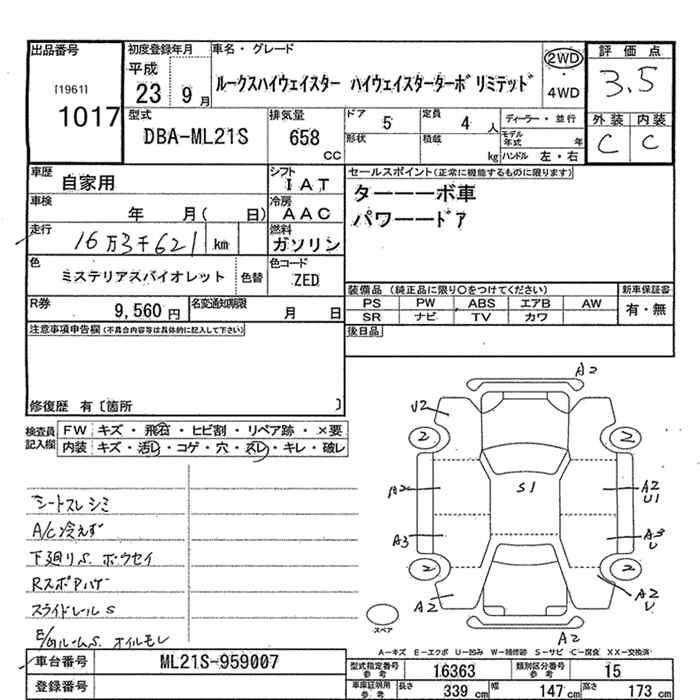 出品番号
[1961]
1017
初度登録年月
平成
23 9 月
車名・グレード
ルークスハイウェイスター ハイウェイスターターボリミテッド
2WD
・
4WD
評価点
3.5
外装 内装
C C
型式
DBA-ML21S
排気量
658
CC
ドア
5
定員
4 人
形状
積載
kg
ディーラー・並行
モデル年式 年
ハンドル 左・右
車歴
自家用
シフト
IAT
車検
年 月( 日)
冷房
AAC
走行
16万3千621 km
燃料
ガソリン
色
ミステリアスバイオレット
色替
色コード
ZED
R券
9,560 円
名変通知期限
月 日
セールスポイント(正常に機能するものに限ります)
ターーーボ車
パワーードア
装備品(純正品に限り〇をつけてください)
PS PW ABS エアB AW
SR ナビ TV カワ
新車保証書
有・無
後日品
注意事項申告欄(不具合内容等は具体的に記入して下さい)
修復歴 有〔箇所 〕
検査員記入欄
FW キズ・飛石・ヒビ割・リペア跡・×要
内装 キズ・汚レ・コゲ・穴・スレ・キレ・破レ
シートスレ シミ
A/C冷えず
下廻りS、ボウセイ
RスポPハゲ
スライドレールS
E/gルームS、オイルモレ
A2
U2
2
2
A2
S1
A2
U1
A3
A3
U
2
2
A2
A2
U
A2
スペア
A-キズ E-エクボ U-凹み W-補修跡 S-サビ C-腐食 XX-交換済
車台番号
ML21S-959007
登録番号
型式指定番号
参考
16363
類別区分番号
参考
15
車庫証明用
参考
長さ
339 cm
幅
147 cm
高さ
173 cm